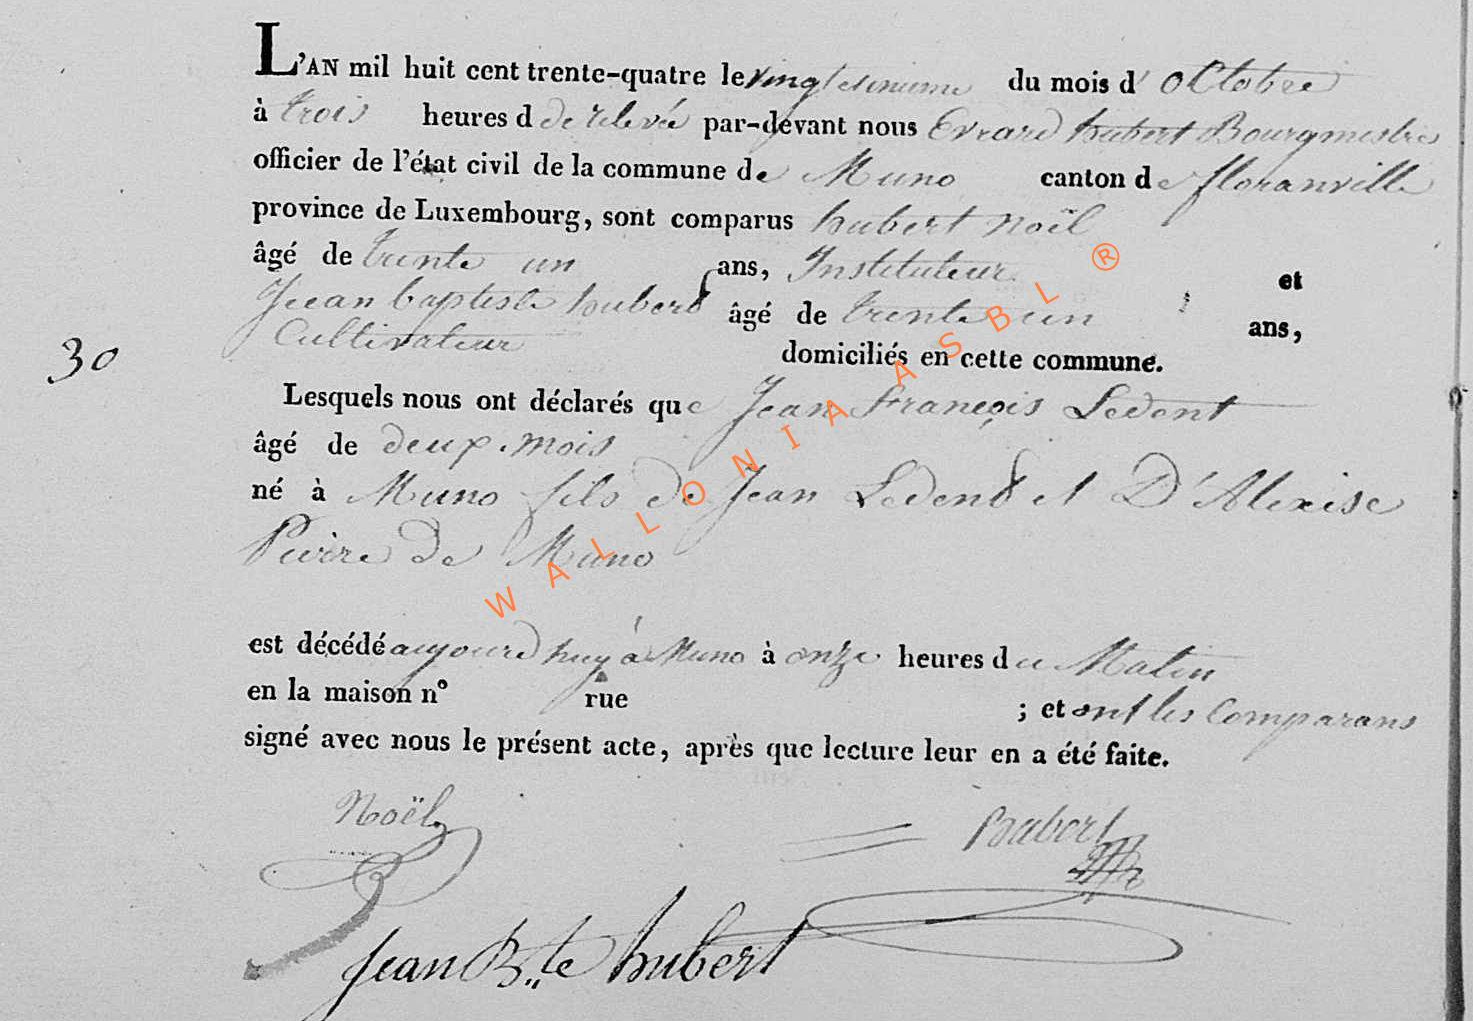 L'AN mil huit cent trente-quatre le vingt du mois d' octobre
à trois heures d de relevé par-devant nous Evrard hubert Bourgmestre
officier de l'état civil de la commune de Muno canton de floranville
province de Luxembourg, sont comparus hubert Noël
âgé de trente un ans, Instituteur et
Jean baptiste hubert âgé de trente un ans,
Cultivateur domiciliés en cette commune.
30
Lesquels nous ont déclarés que Jean François Ledent
âgé de deux mois
né à Muno fils de Jean Ledent et D'Alexise
Pierre de Muno
est décédé aujourd huy à Muno à onze heures du Matin
en la maison nº rue ; et ont les Comparans
signé avec nous le présent acte, après que lecture leur en a été faite.
Noël
hubert
Jean B,,te hubert
WALLONIA ASBL ®